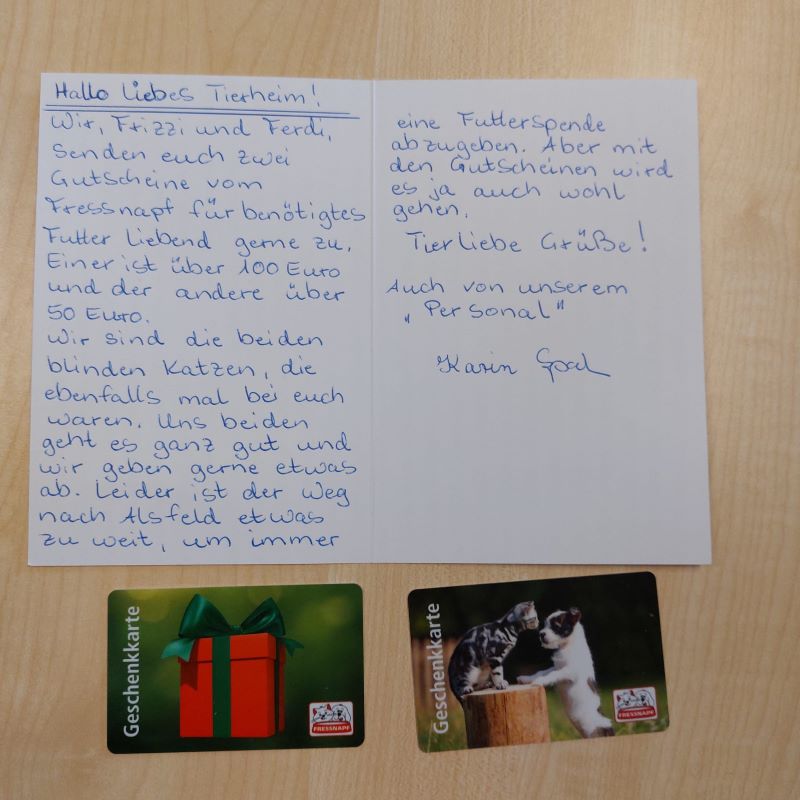 Hallo Liebes Tierheim!
Wir, Frizzi und Ferdi,
senden euch zwei
Gutscheine vom
Fressnapf für benötigtes
Futter Liebend gerne zu.
Einer ist über 100 Euro
und der andere über
50 Euro.
Wir sind die beiden
blinden Katzen, die
ebenfalls mal bei euch
waren. Uns beiden
geht es ganz gut und
wir geben gerne etwas
ab. Leider ist der Weg
nach Alsfeld etwas
zu weit, um immer
eine Futterspende
abzugeben. Aber mit
den Gutscheinen wird
es ja auch wohl
gehen.
Tierliebe Grüße!
Auch von unserem
„Personal"
Karin
Geschenkkarte
FRESSNAPF
Geschenkkarte
FRESSNAPF